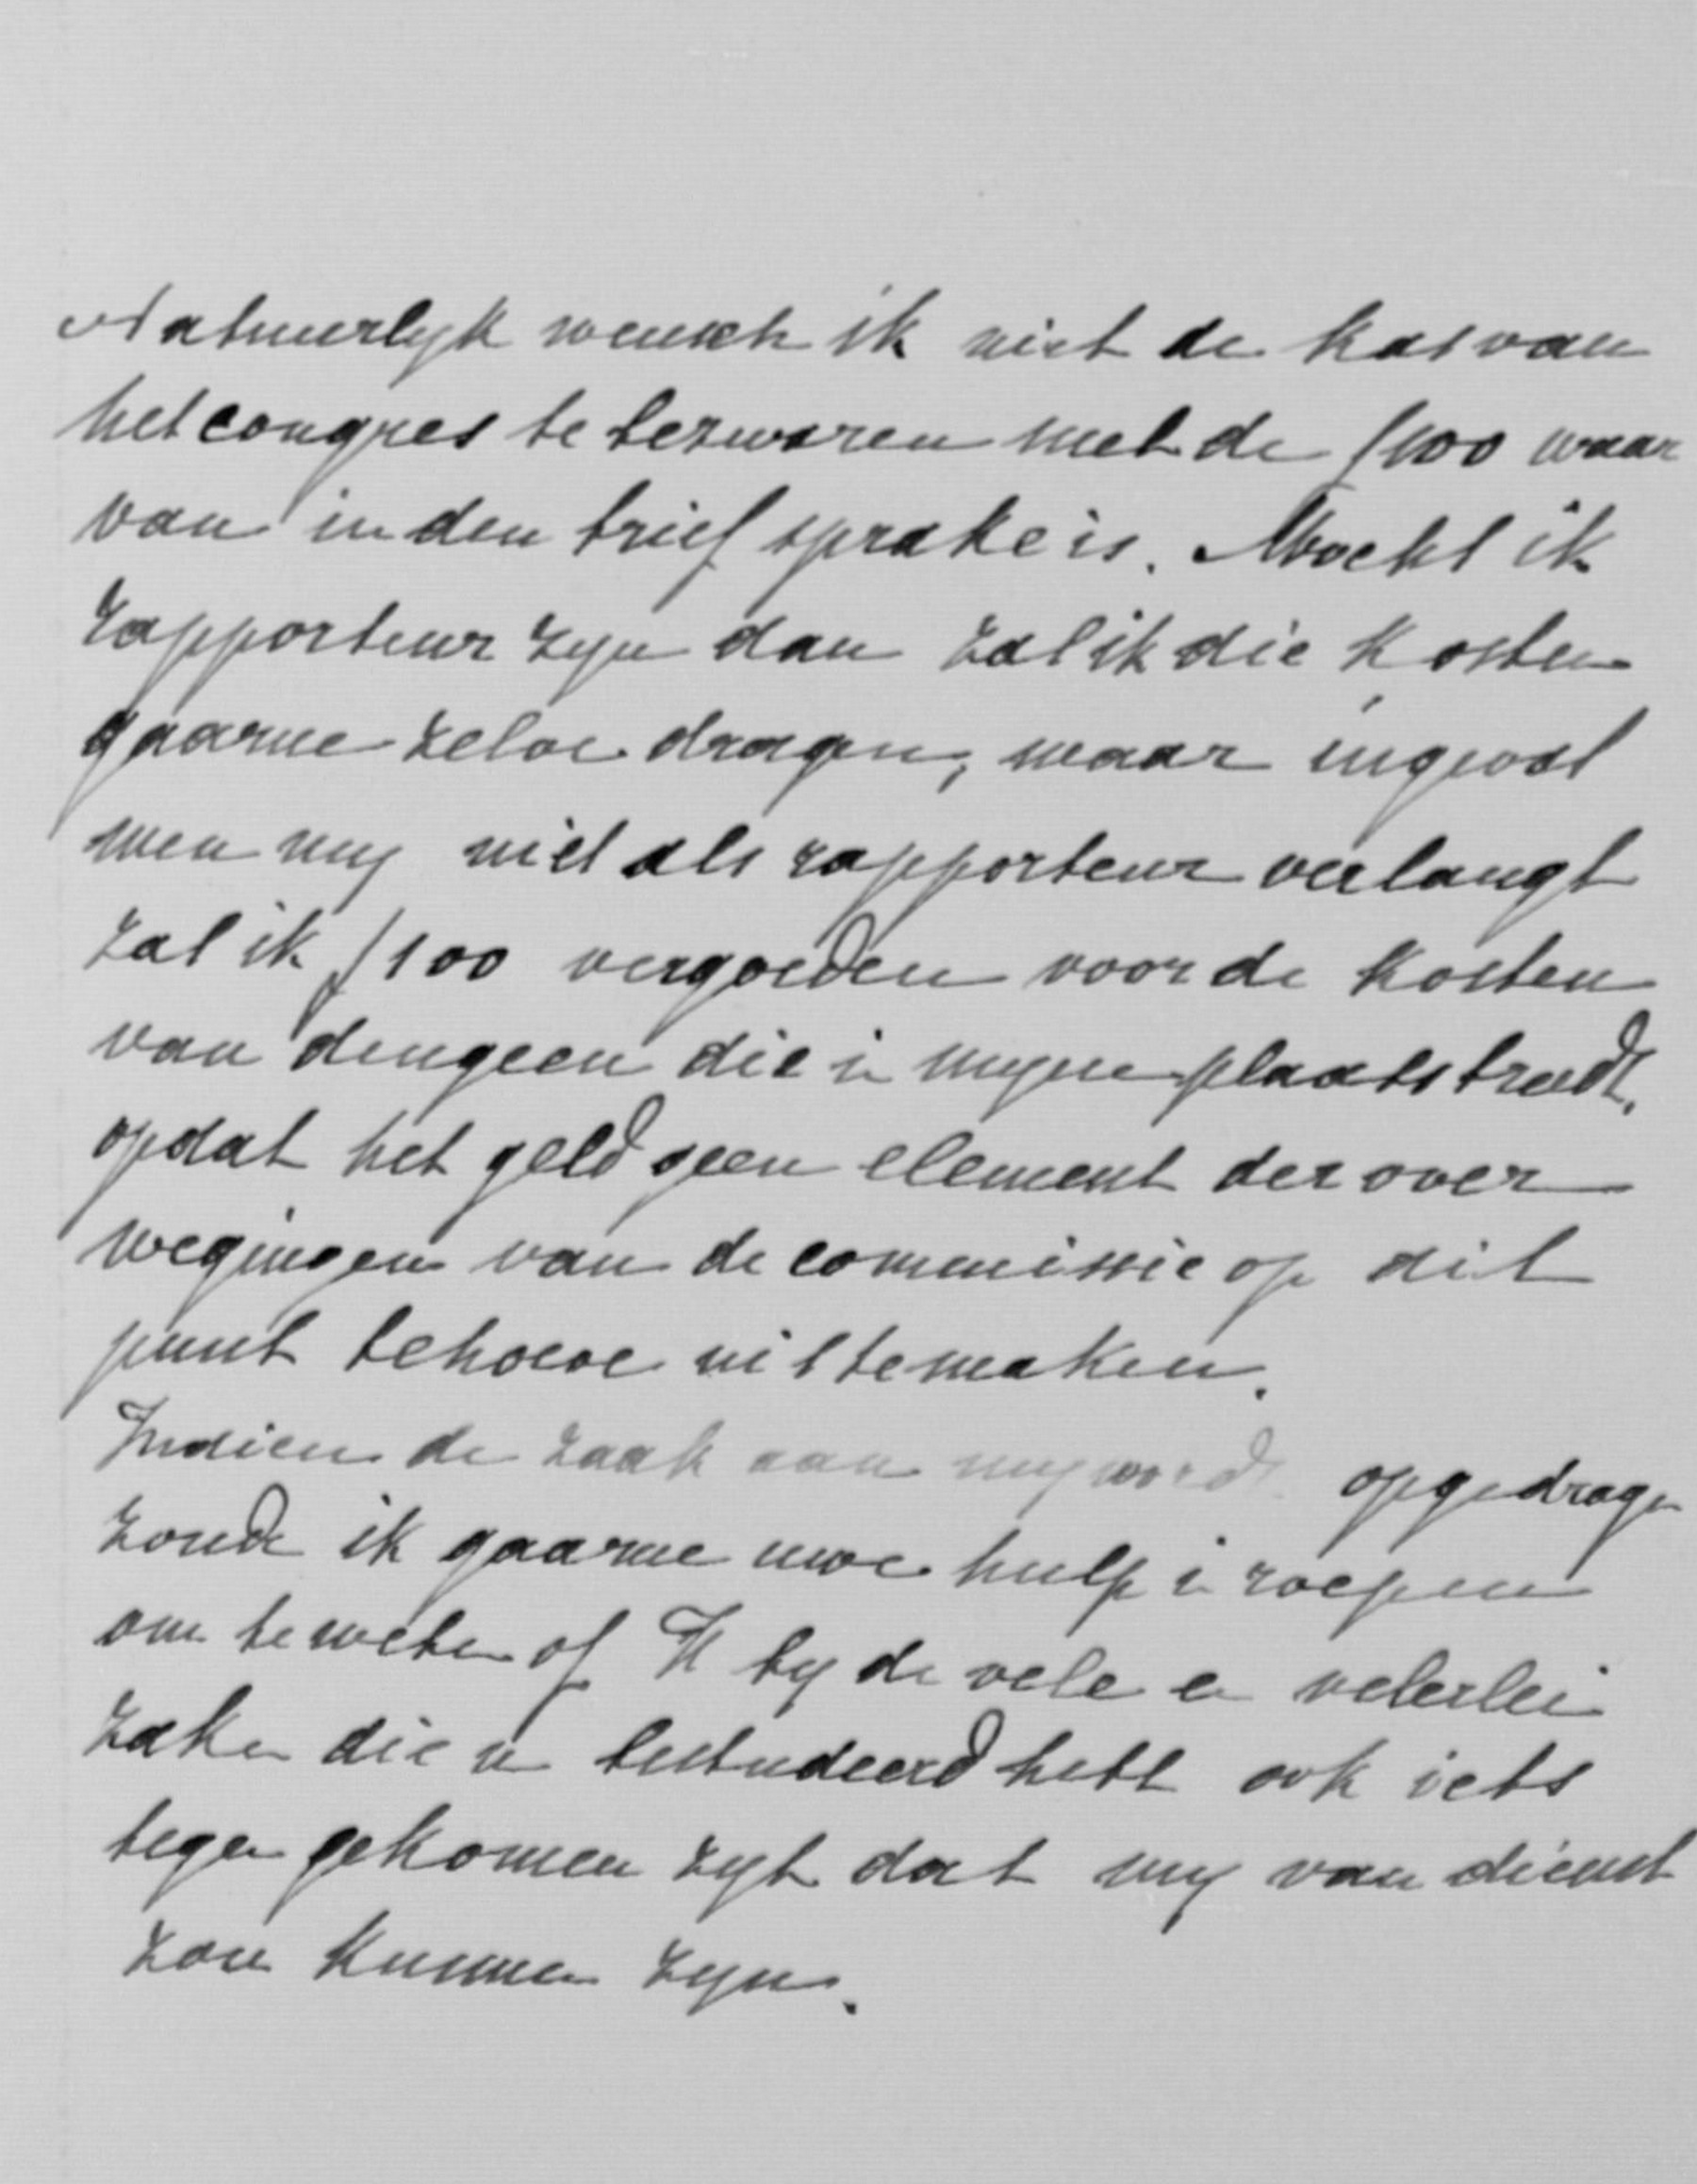 Natuurlyk wensch ik niet de kas van
het congres te bezwaren met de f100 waar
van in den brief sprake is. Mocht ik
rapporteur zyn dan zal ik die kosten
gaarne zelve dragen, maar ingeval
men my niet als rapporteur verlangt
zal ik f100 vergoeden voor de kosten
van dengeen die in myne plaats treedt,
opdat het geld geen element der over
wegingen van de commissie op dit
punt behoeve uit te maken.
Indien de zaak aan my wordt opgedragen
zoude ik gaarne uwe hulp in roepen
om te weten of U by de vele en velerlei
zaken die u bestudeerd hebt ook iets
tegen gekomen zyt dat my van dienst
zou kunnen zyn.